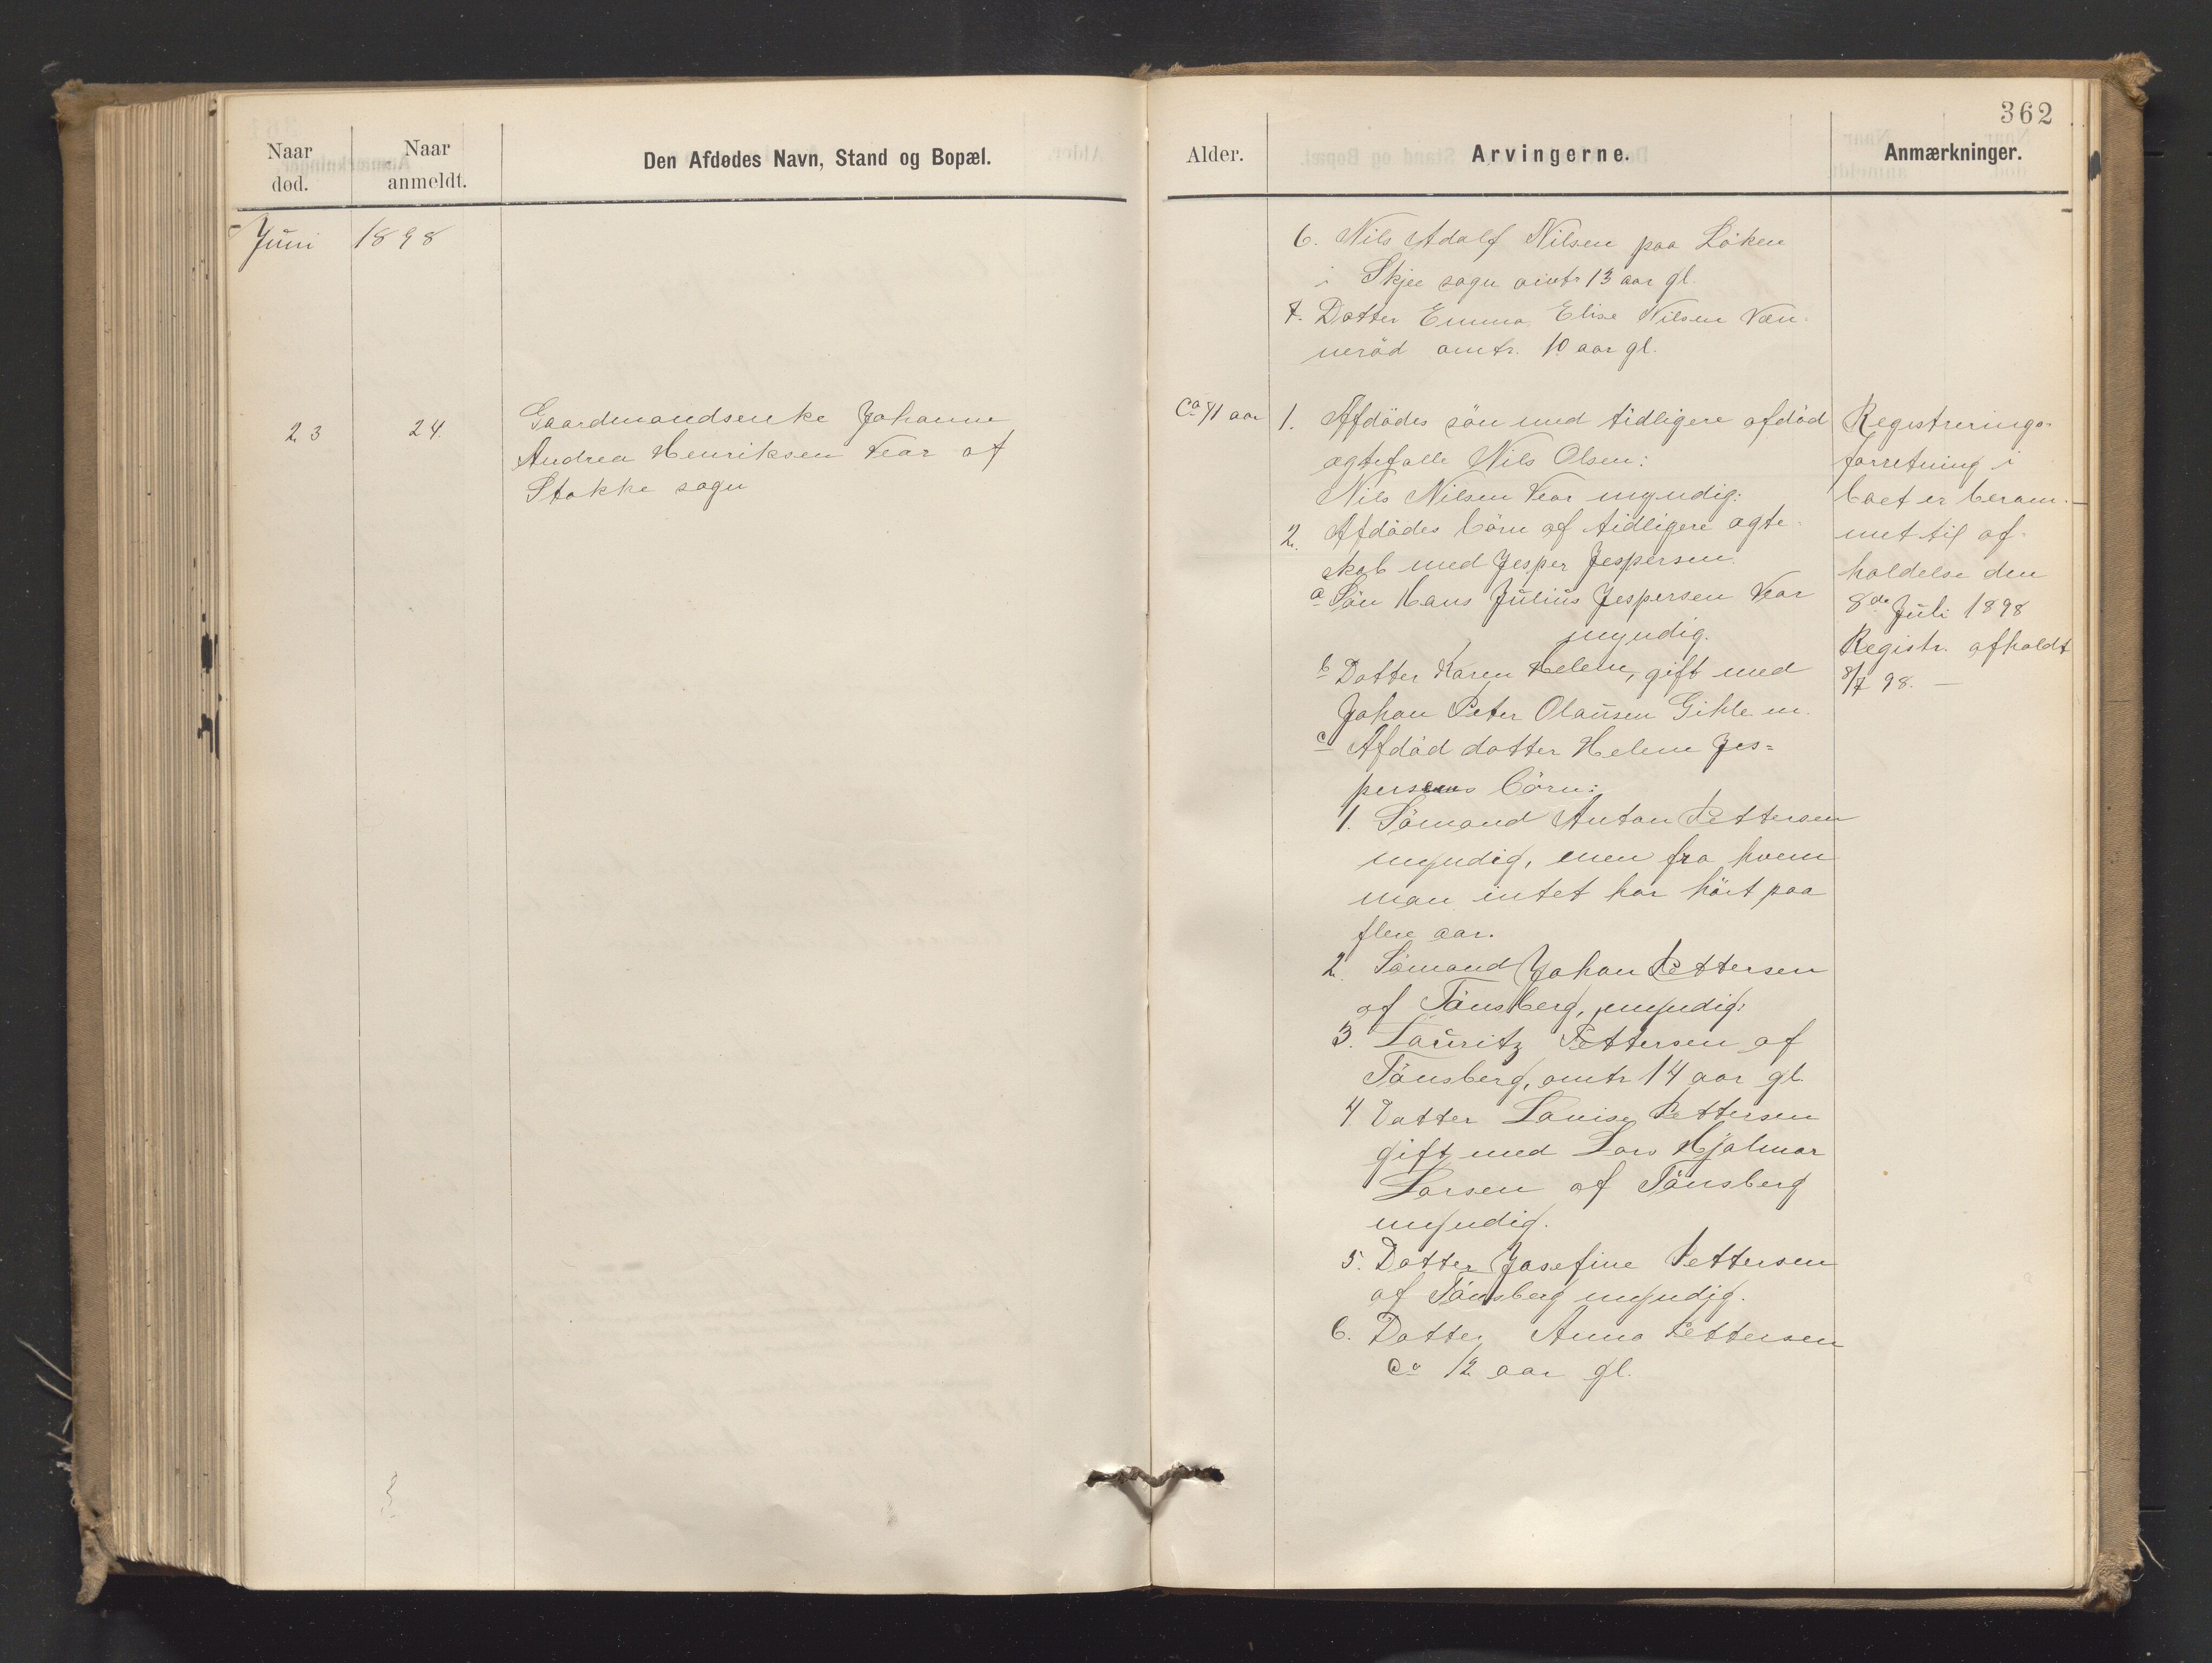 362
Naar død.
Naar anmeldt.
Den Afdødes Navn, Stand og Bopæl.
Alder.
Arvingerne.
Anmærkninger.
Juni 1898
6. Nils Adolf Nilsen paa Löken
i Skjee sogn omtr 13 aar gl.
7. Datter Emma Elise Nilsen Væn-
neröd omtr. 10 aar gl.
23
24.
Gaardmandsenke Johanne
Andrea Henriksen Vear af
Stokke sogn
Ca 71 aar
1. Afdödes sön med tidligere afdöd
ægtefælle Nils Olsen:
Nils Nilsen Vear myndig:
2. Afdödes börn af tidligere ægte-
skab med Jesper Jespersen
a Sön Hans Julius Jespersen Vear
myndig.
b Datter Karen Helene, gift med
Johan Peter Olausen Gihle m.
c Afdöd datter Helene Jes=
persens börn:
1. Sömand Anton Pettersen
myndig, men fra hvem
man intet har hört paa
flere aar.
2 Sömand Johan Pettersen
af Tönsberg, myndig:
3. Lauritz Pettersen af
Tönsberg, omtr 14 aar gl.
4 Datter Lovise Pettersen
gift med Lars Hjalmar
Larsen af Tönsberg
myndig.
5. Datter Josefine Pettersen
af Tönsberg myndig.
6. Datter Anna Pettersen
Ca 12 aar gl.
Registrerings-
forretning i
boet er beram-
met til af-
holdelse den
8de Juli 1898
Registr. afholdt
8/7 98. —